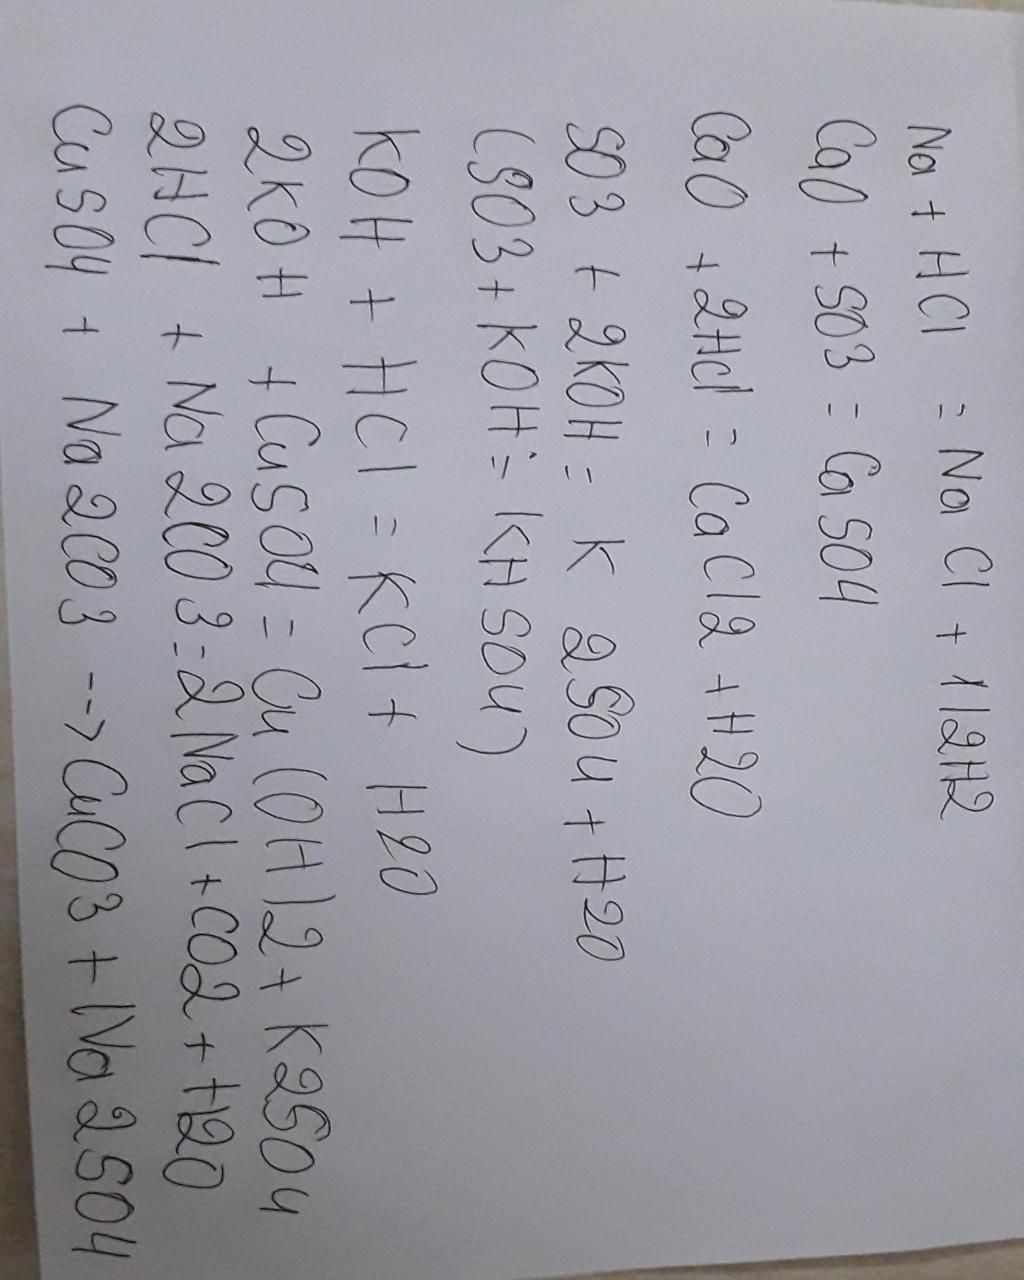 Na + HCl = NaCl + 1/2H2
CaO + SO3 = CaSO4
CaO + 2HCl = CaCl2 + H2O
SO3 + 2KOH = K2SO4 + H2O
(SO3 + KOH = KHSO4)
KOH + HCl = KCl + H2O
2KOH + CuSO4 = Cu(OH)2 + K2SO4
2HCl + Na2CO3 = 2NaCl + CO2 + H2O
CuSO4 + Na2CO3 --> CuCO3 + Na2SO4